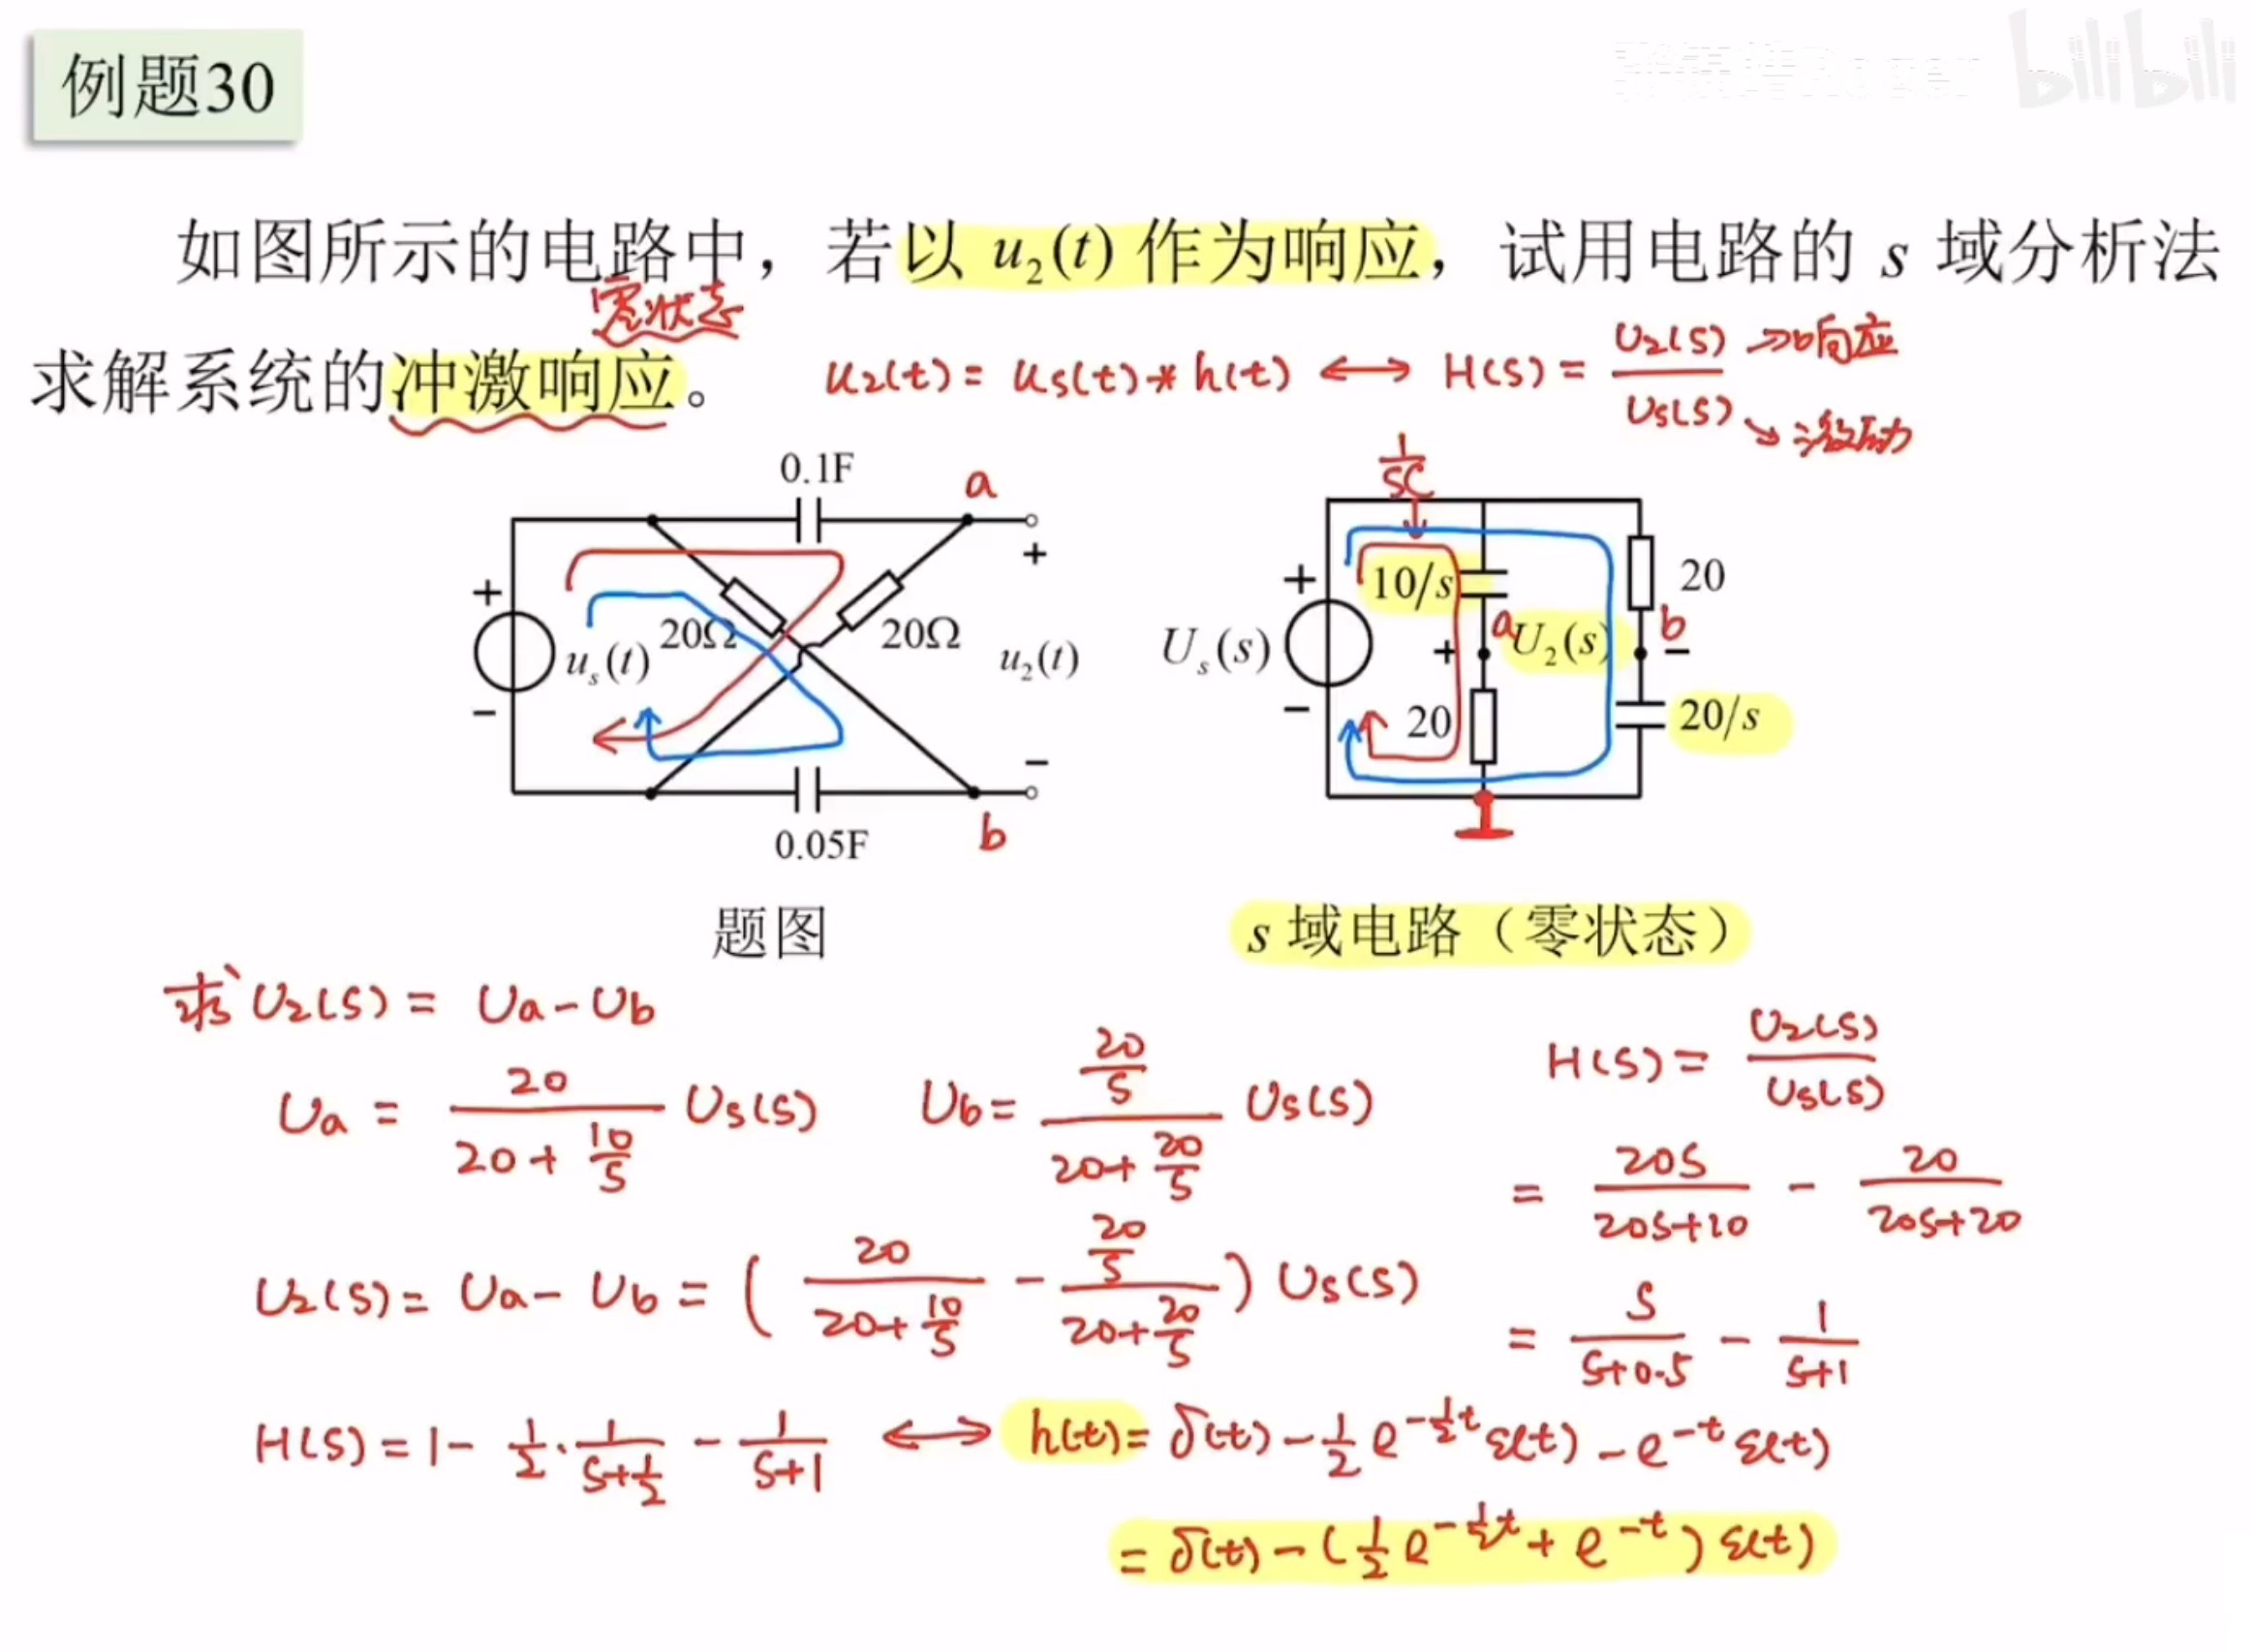 例题30
bilibili
如图所示的电路中，若以 u₂(t) 作为响应，试用电路的 s 域分析法
零状态
求解系统的冲激响应。
u₂(t) = us(t) * h(t) ⟷ H(s) = U₂(s)/Us(s)
→响应
↘激励
0.1F
a
+
+
20Ω
20Ω
us(t)
u₂(t)
−
−
0.05F
b
题图
1/SC
10/s
20
+
a
U₂(s)
b
Us(s)
+
−
−
20
20/s
s 域电路（零状态）
求 U₂(s) = Ua − Ub
Ua = 20/(20 + 10/s) Us(s)
Ub = (20/s)/(20 + 20/s) Us(s)
U₂(s) = Ua − Ub = ( 20/(20 + 10/s) − (20/s)/(20 + 20/s) ) Us(s)
H(s) = U₂(s)/Us(s)
= 20s/(20s+10) − 20/(20s+20)
= s/(s+0.5) − 1/(s+1)
H(s) = 1 − 1/2 · 1/(s+1/2) − 1/(s+1) ⟷ h(t) = δ(t) − 1/2 e^(−1/2 t) ε(t) − e^(−t) ε(t)
= δ(t) − (1/2 e^(−1/2 t) + e^(−t)) ε(t)